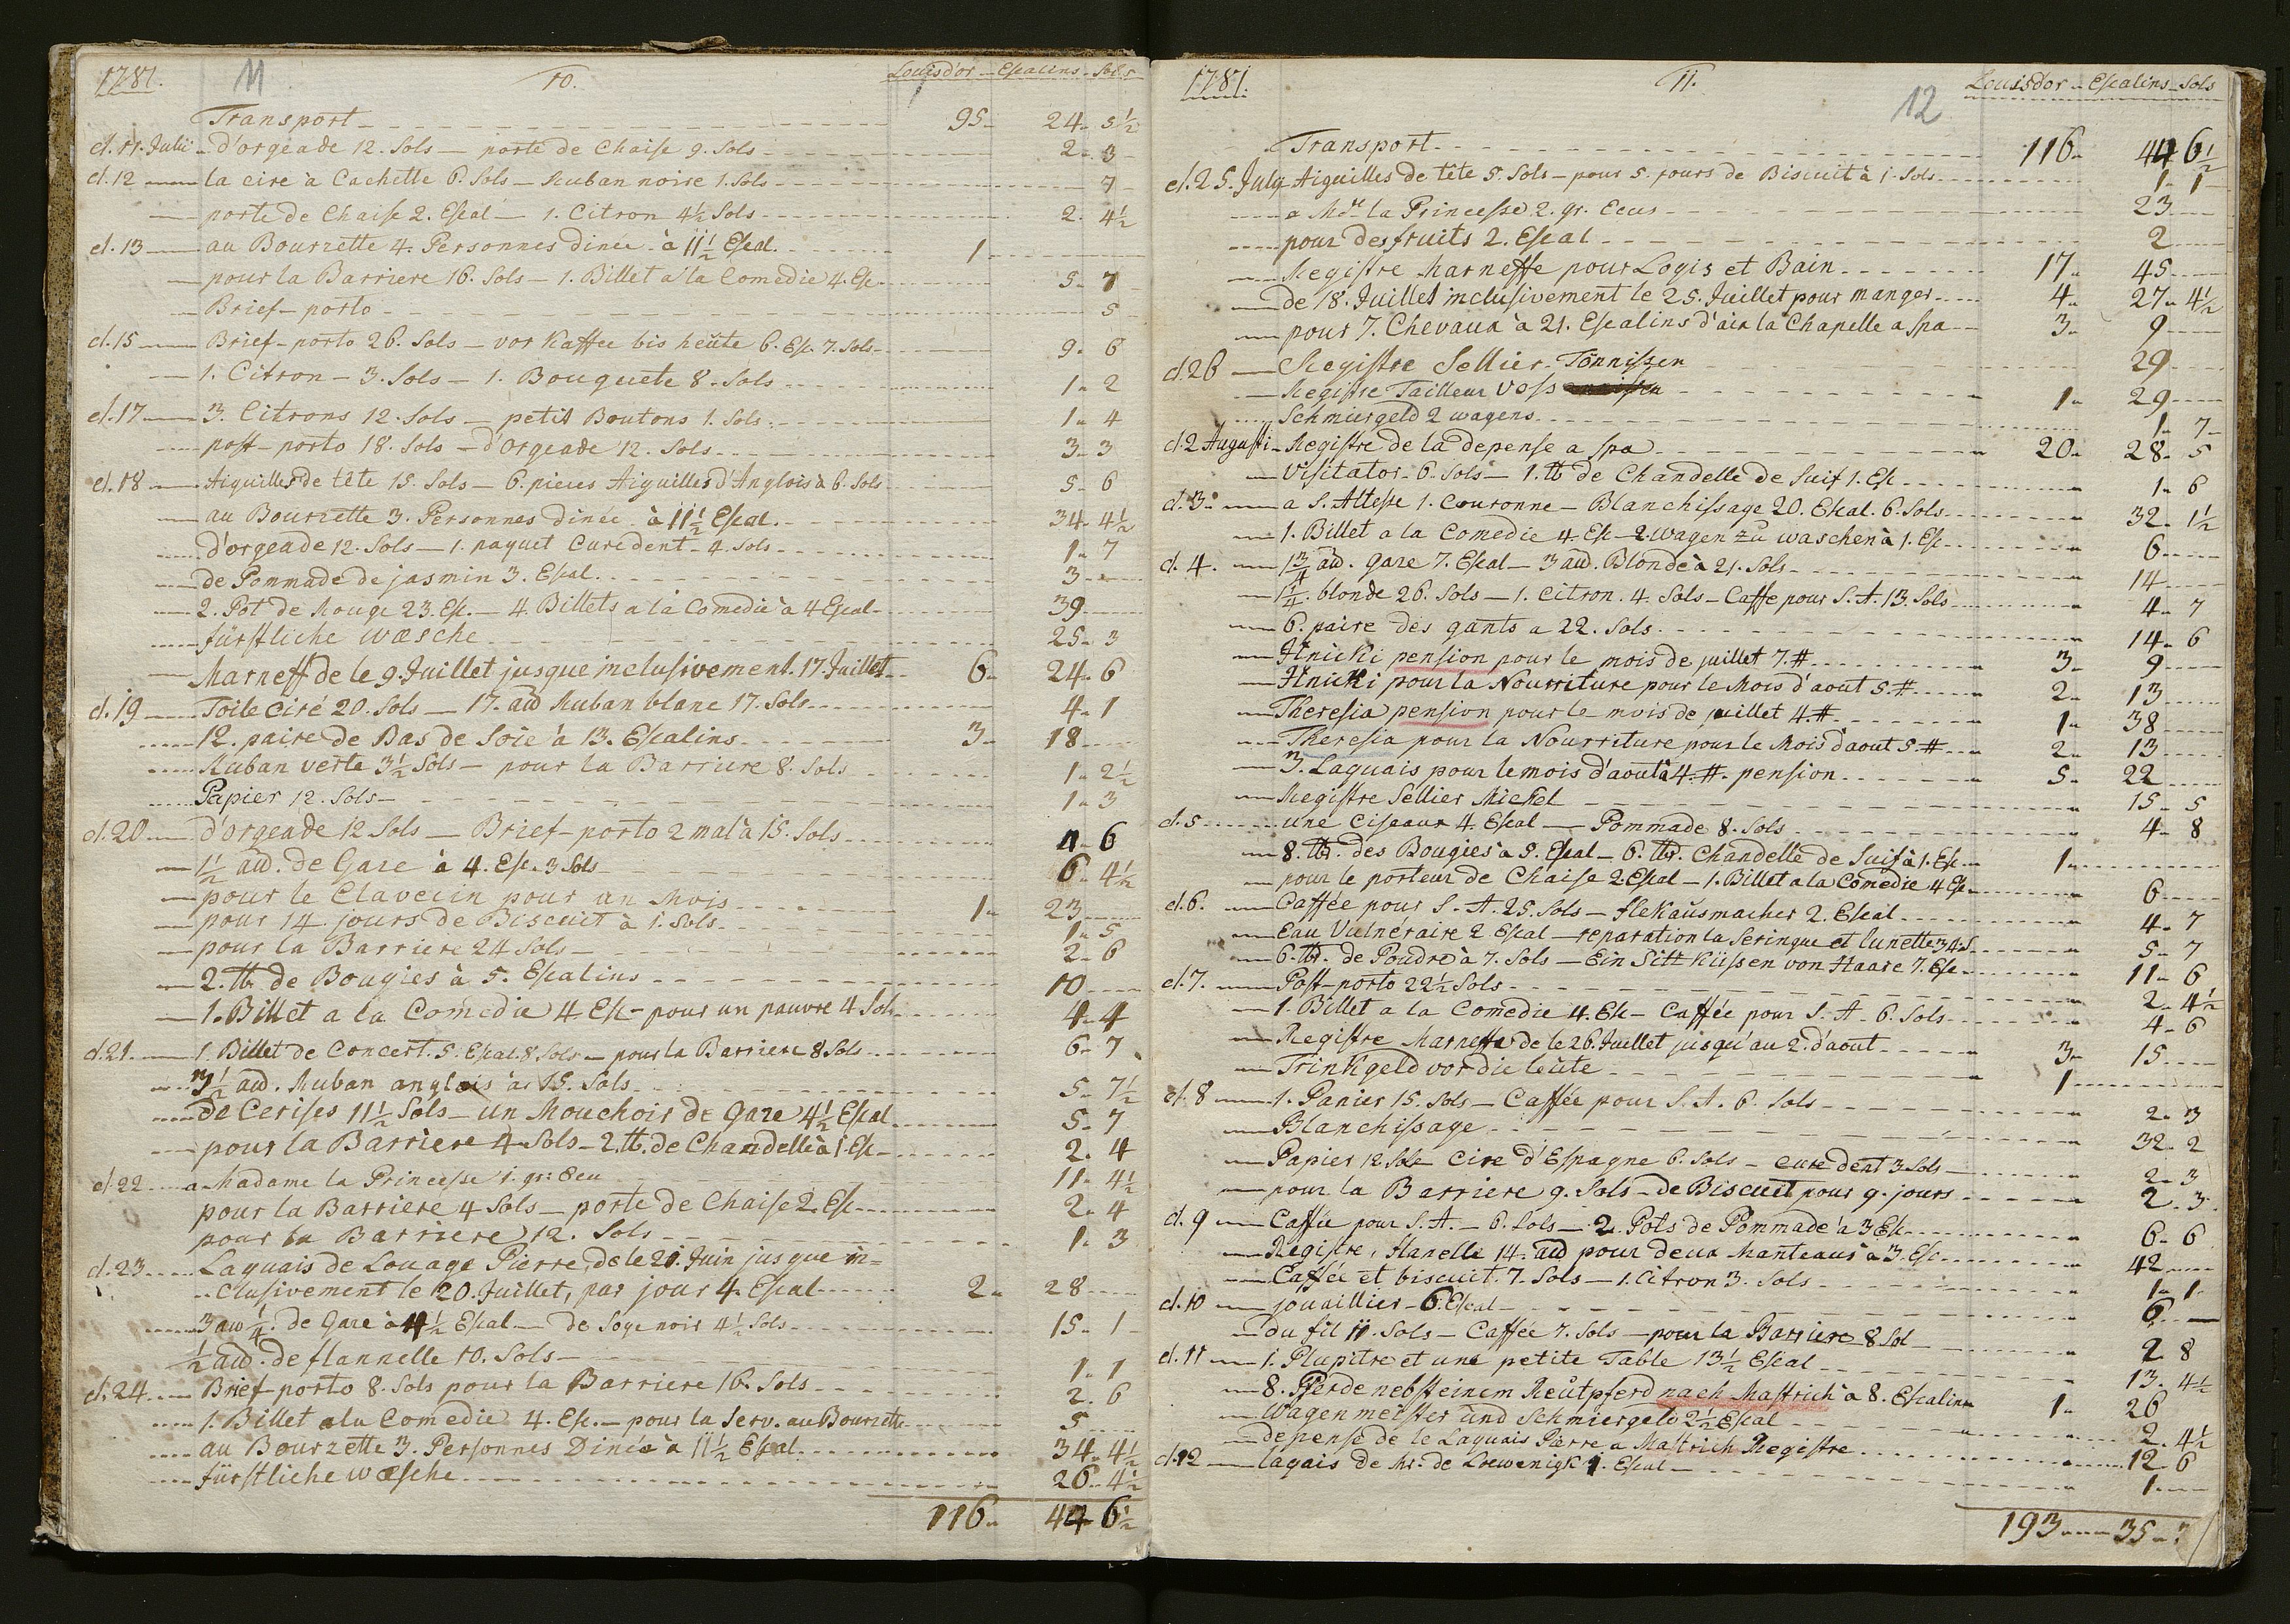 1781. 11 10. Louisd'or - Escalins - Sols
Transport 95 - 24 - 5 1/2
d. 11. Julii - d'orgeade 12. Sols - porte de Chaise 9. Sols 2 - 3
d. 12 la cire à Cachette 6. Sols - Ruban noire 1. Sols 7
porte de Chaise 2. Escal - 1. Citron 4 1/2 Sols 2 - 4 1/2
d. 13 au Bourzette 4. Personnes dinée à 11 1/2 Escal. 1
pour la Barriere 16. Sols - 1. Billet a la Comedie 4. Esc 5 - 7
Brief-porto 5
d. 15 Brief-porto 26. Sols - vor Kaffee bis heüte 6. Esc. 7. Sols 9 - 6
1. Citron - 3. Sols - 1. Bouquete 8. Sols 1 - 2
d. 17 3. Citrons 12. Sols - petit Boutons 1. Sols. 1 - 4
post-porto 18. Sols - d'orgeade 12. Sols 3 - 3
d. 18 Aiguilles de tête 15. Sols - 6. pieces Aiguilles d'Anglois à 6. Sols 5 - 6
au Bourzette 3. Personnes dinée à 11 1/2 Escal. 34 - 4 1/2
d'orgeade 12. Sols - 1. paquet Curedent - 4. Sols 1 - 7
de Pommade de jasmin 3. Escal. 3
2. Pot de Rouge 23. Esc. - 4. Billets a la Comedie à 4 Escal 39
fürstliche wæsche 25 - 3
Marneff de le 9. Juillet jusque inclusivement. 17. Juillet 6 - 24 - 6
d. 19 Toile ciré 20. Sols - 17. aud Ruban blanc 17. Sols 4 - 1
12. paire de Bas de Soie à 13. Escalins 3 - 18
Ruban verte 3 1/2 Sols - pour la Barriere 8. Sols 1 - 2 1/2
Papier 12. Sols 1 - 3
d. 20 d'orgeade 12 Sols - Brief-porto 2 mal à 15. Sols 4 - 6
1 1/2 aud. de Gaze à 4. Esc. 3 Sols 6 - 4 1/2
pour le Clavecin pour un Mois 1 - 23
pour 14. jours de Biscuit à 1. Sols 1 - 5
pour la Barriere 24 Sols 2 - 6
2. lb de Bougies à 5. Escalins 10
1. Billet a la Comédie 4. Esc - pour un pauvre 4 Sols 4 - 4
d. 21. 1. Billet de Concert. 5. Escal. 8 Sols - pour la Barriere 8 Sols 6 - 7
3 1/2 aud. Ruban anglois à 15. Sols 5 - 7 1/2
de Cerises 11 1/2 Sols - un Mouchoir de Gaze 4 1/2 Escal 5 - 7
pour la Barriere 4 Sols - 2. lb. de Chandelle à 1 Esc 2 - 4
d 22 a Madame la Princesse 1. gr: Ecu 11 - 4 1/2
pour la Barriere 4 Sols - porte de Chaise 2. Esc 2 - 4
pour la Barriere 12. Sols 1 - 3
d. 23. Laquais de Louage Pierre, de le 21. Juin jusque in=
clusivement le 20. Juillet, par jour 4. Escal 2 - 28
3 aud 1/4. de Gaze à 4 1/2 Escal - de Soye noir 4 1/2 Sols 15 - 1
1/2 aud. de flannelle 10. Sols 1 - 1
d. 24 Brief-porto 8. Sols pour la Barriere 16. Sols 2 - 6
1. Billet a la Comedie 4. Esc. - pour la Serv. au Bourzette 5
au Bourzette 3. Personnes Dinée à 11 1/2 Escal. 34 - 4 1/2
fürstliche wæsche 26 - 4 1/2
116 - 44 6 1/2
1781. 11. 12 Louisd'or - Escalins - Sols
Transport 116 - 44 6 1/2
d. 25. July Aiguilles de tête 5. Sols - pour 5. jours de Biscuit à 1. Sols 1 - 1
a Mde la Princesse 2. gr. Ecus 23
pour des fruits 2. Escal 2
Registre Marneffe pour Logis et Bain 17 - 45
de 18. Juillet inclusivement le 25. Juillet pour manger 4 - 27 - 4 1/2
pour 7. Chevaux à 21. Escalins d'aix la Chapelle a Spa 3 - 9
d. 26 Registre Sellier Tönnissen 29
Registre Tailleur Voss 1 - 29
Schmiergeld 2 wagens 1 - 7
d. 2 Augusti Registre de la depense a Spa 20 - 28 - 5
Visitator - 6. Sols - 1. lb de Chandelle de Suif 1. Esc 1 - 6
d. 3 a S. Altesse 1. Couronne - Blanchissage 20. Escal. 6. Sols 32 - 1 1/2
1. Billet a la Comedie 4. Esc - 2. Wagen zu waschen à 1. Esc 6
d. 4. 1 3/4 aud. Gaze 7. Escal - 3 aud. Blonde à 21. Sols 14
1 1/4. blonde 26. Sols - 1. Citron. 4. Sols - Caffe pour S. A. 13. Sols 4 - 7
6. paire des gants a 22. Sols 14 - 6
Hnicki pension pour le mois de juillet 7. # 3 - 9
Hnicki pour la Nourriture pour le Mois d'aout 5. # 2 - 13
Theresia pension pour le mois de juillet 4. # 1 - 38
Theresia pour la Nourriture pour le Mois d'aout 5. # 2 - 13
3. Laquais pour le mois d'aout à 4. #. pension 5 - 22
Registre Sellier Michel 15 - 5
d. 5 une Ciseaux 4. Escal - Pommade 8. Sols 4 - 8
8. lb. des Bougies à 5. Escal - 6. lb. Chandelle de Suif à 1. Esc 1
pour le porteur de Chaise 2. Escal - 1. Billet a la Comedie 4 Esc 6
d. 6. Caffée pour S. A. 25. Sols - Hekausmacher 2. Escal 4 - 7
Eau Vulnéraire 2 Escal - reparation la Seringue et lunette 34 S 5 - 7
6. lb. de Poudre à 7. Sols - Ein Sitt Küssen von Haare 7. Esc 11 - 6
d. 7. Post-porto 22 1/2 Sols 2 - 4 1/2
1. Billet a la Comedie 4. Esc - Caffée pour S. A. 6. Sols 4 - 6
Registre Marneffe de le 26. Juillet jusqu'au 2. d'aout 3 - 15
Trinkgeld vor die leüte 1
d. 8 1. Panier 15. Sols - Caffée pour S. A. 6. Sols 2 - 3
Blanchissage 32 - 2
Papier 12 Sols Cire d'Espagne 6. Sols - cure dent 3 Sols 2 - 3
pour la Barriere 9. Sols - de Biscuit pour 9. jours 2 - 3
d. 9 Caffée pour S. A. - 6. Sols - 2. Pots de Pommade à 3 Esc 6 - 6
Registre, Flanelle 14. aud pour deux Manteaus à 3. Esc 42
Caffée et biscuit. 7. Sols - 1. Citron 3. Sols 1 - 1
d. 10 jouaillier - 6. Escal 6
du fil 11. Sols - Caffée 7. Sols - pour la Barriere 8 Sol 2 8
d. 11 1. Plupitre et une petite Table 13 1/2 Escal 13 - 4 1/2
8. Pferde nebst einem Reütpferd nach Mastrich à 8. Escalins 1 - 26
Wagenmeister und Schmiergeld 2 1/2 Escal 2 - 4 1/2
depense de le Laquais Pierre a Mastrich Registre 12 - 6
d. 12 laqais de Mr. de Loewenigk 1. Escal 1
193 - 35 -